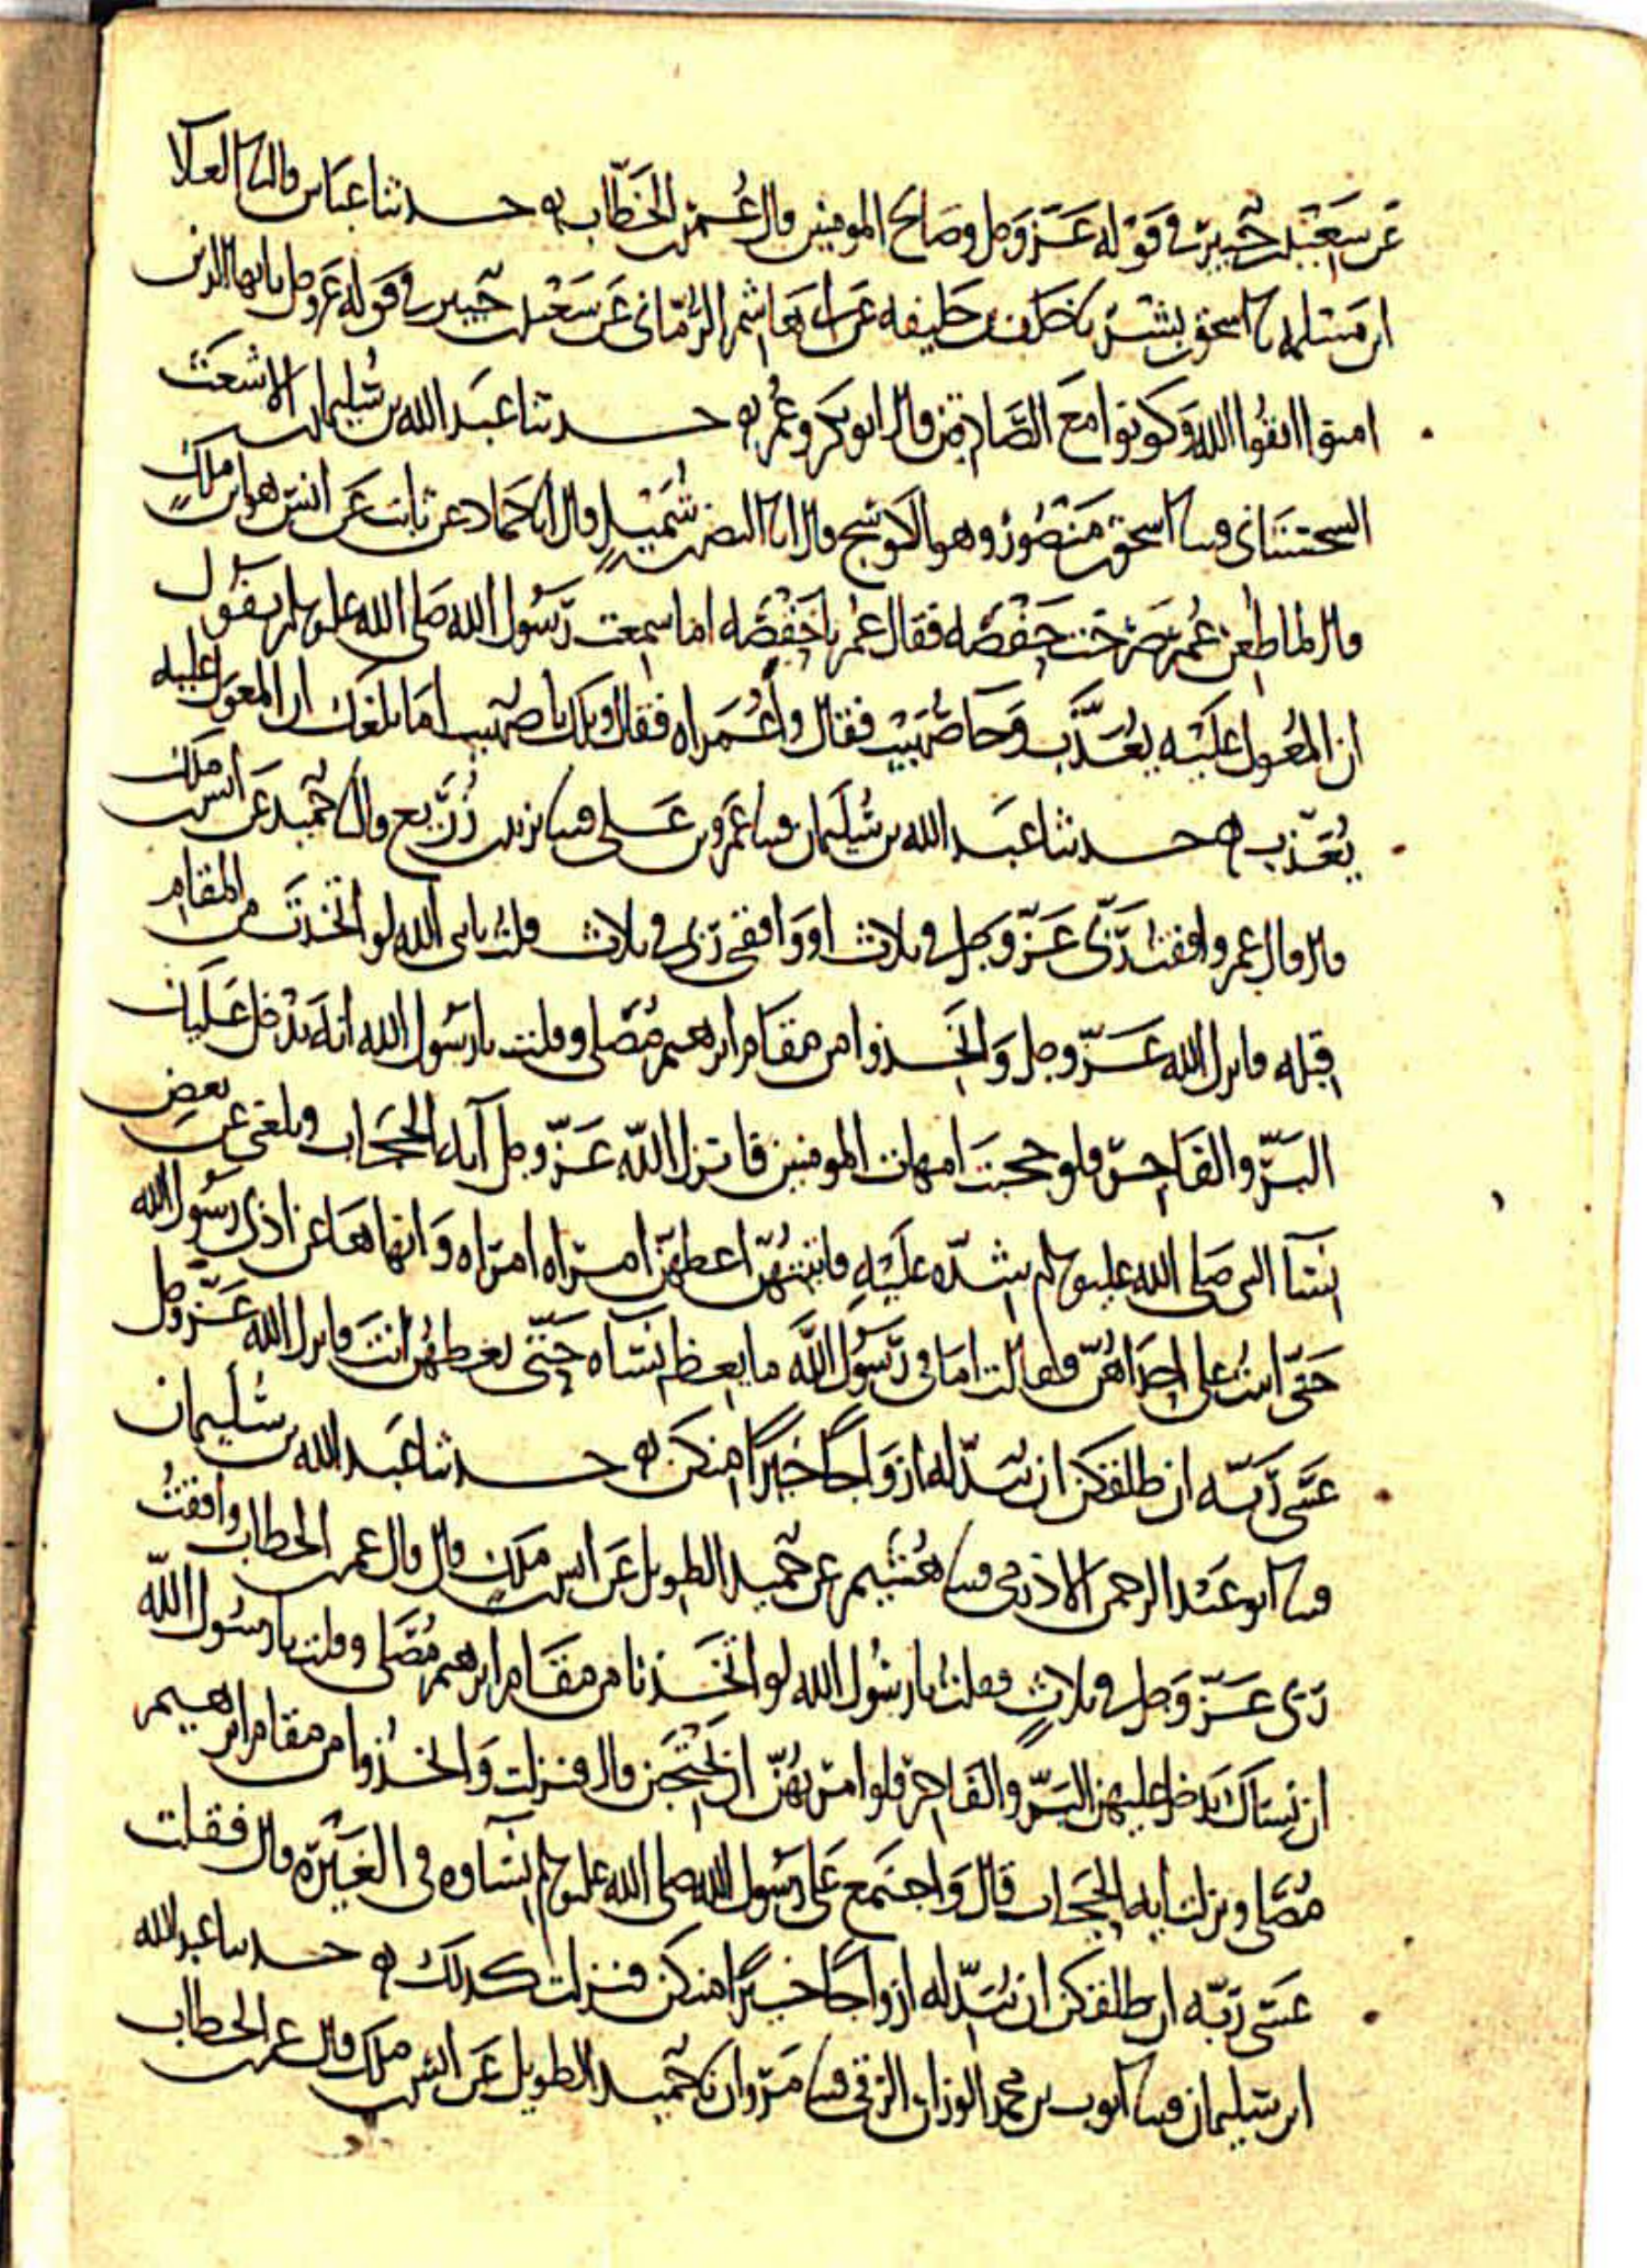 عن سعيد بن جبير في قوله عز وجل وصالح المومنين قال عمر بن الخطاب حدثنا عباس قال ثنا العلا
ابن مسلمه ثنا اسحق بن بشر ثنا خلف بن خليفه عن ابي هاشم الرماني عن سعيد بن جبير في قوله عز وجل يايها الذين
امنوا اتقوا الله وكونوا مع الصادقين قال ابو بكر وعمر حدثنا عبد الله بن سليمان بن الاشعث
السجستاني قثنا اسحق بن منصور وهو الكوسج قال انا النضر بن شميل قال انا حماد عن ثابت عن انس هو ابن ملك
قال لما طعن عمر صرخت حفصه فقال عمر يا حفصه اما سمعت رسول الله صلى الله عليه وسلم يقول
ان المعول عليه يعذب وجا صهيب فقال واعمراه فقال ويلك يا صهيب اما بلغك ان المعول عليه
يعذب حدثنا عبد الله بن سليمان قثنا عمرو بن علي قثنا يزيد بن زريع قال ثنا حميد عن انس بن ملك
قال قال عمر وافقت ربي عز وجل في ثلاث او وافقني ربي في ثلاث قلت يا نبي الله لو اتخذت من المقام
قبله فانزل الله عز وجل واتخذوا من مقام ابرهيم مصلى وقلت يا رسول الله انه يدخل عليك
البر والفاجر فلو حجبت امهات المومنين فانزل الله عز وجل آيه الحجاب وبلغني عن بعض
نسآ النبي صلى الله عليه وسلم شده عليه فاتيتهن اعظهن امراه امراه وانهاها عن اذى رسول الله
حتى اتيت على احداهن فقالت اما في رسول الله ما يعظ نساه حتى تعظهن انت فانزل الله عز وجل
عسى ربه ان طلقكن ان يبدله ازواجا خيرا منكن حدثنا عبد الله بن سليمان
قثنا ابو عبد الرحمن الاذرمي قثنا هشيم عن حميد الطويل عن انس بن ملك قال قال عمر بن الخطاب وافقت
ربي عز وجل في ثلاث فقلت يا رسول الله لو اتخذنا من مقام ابرهيم مصلى وقلت يا رسول الله
ان نساك يدخل عليهن البر والفاجر فلو امرتهن ان يحتجبن قال فنزلت واتخذوا من مقام ابرهيم
مصلى ونزلت ايه الحجاب قال واجتمع على رسول الله صلى الله عليه وسلم نساوه في الغيره قال فقلت
عسى ربه ان طلقكن ان يبدله ازواجا خيرا منكن فنزلت كذلك حدثنا عبد الله
ابن سليمان قثنا ايوب بن محمد الوزان الرقي قثنا مروان ثنا حميد الطويل عن انس بن ملك قال عمر بن الخطاب